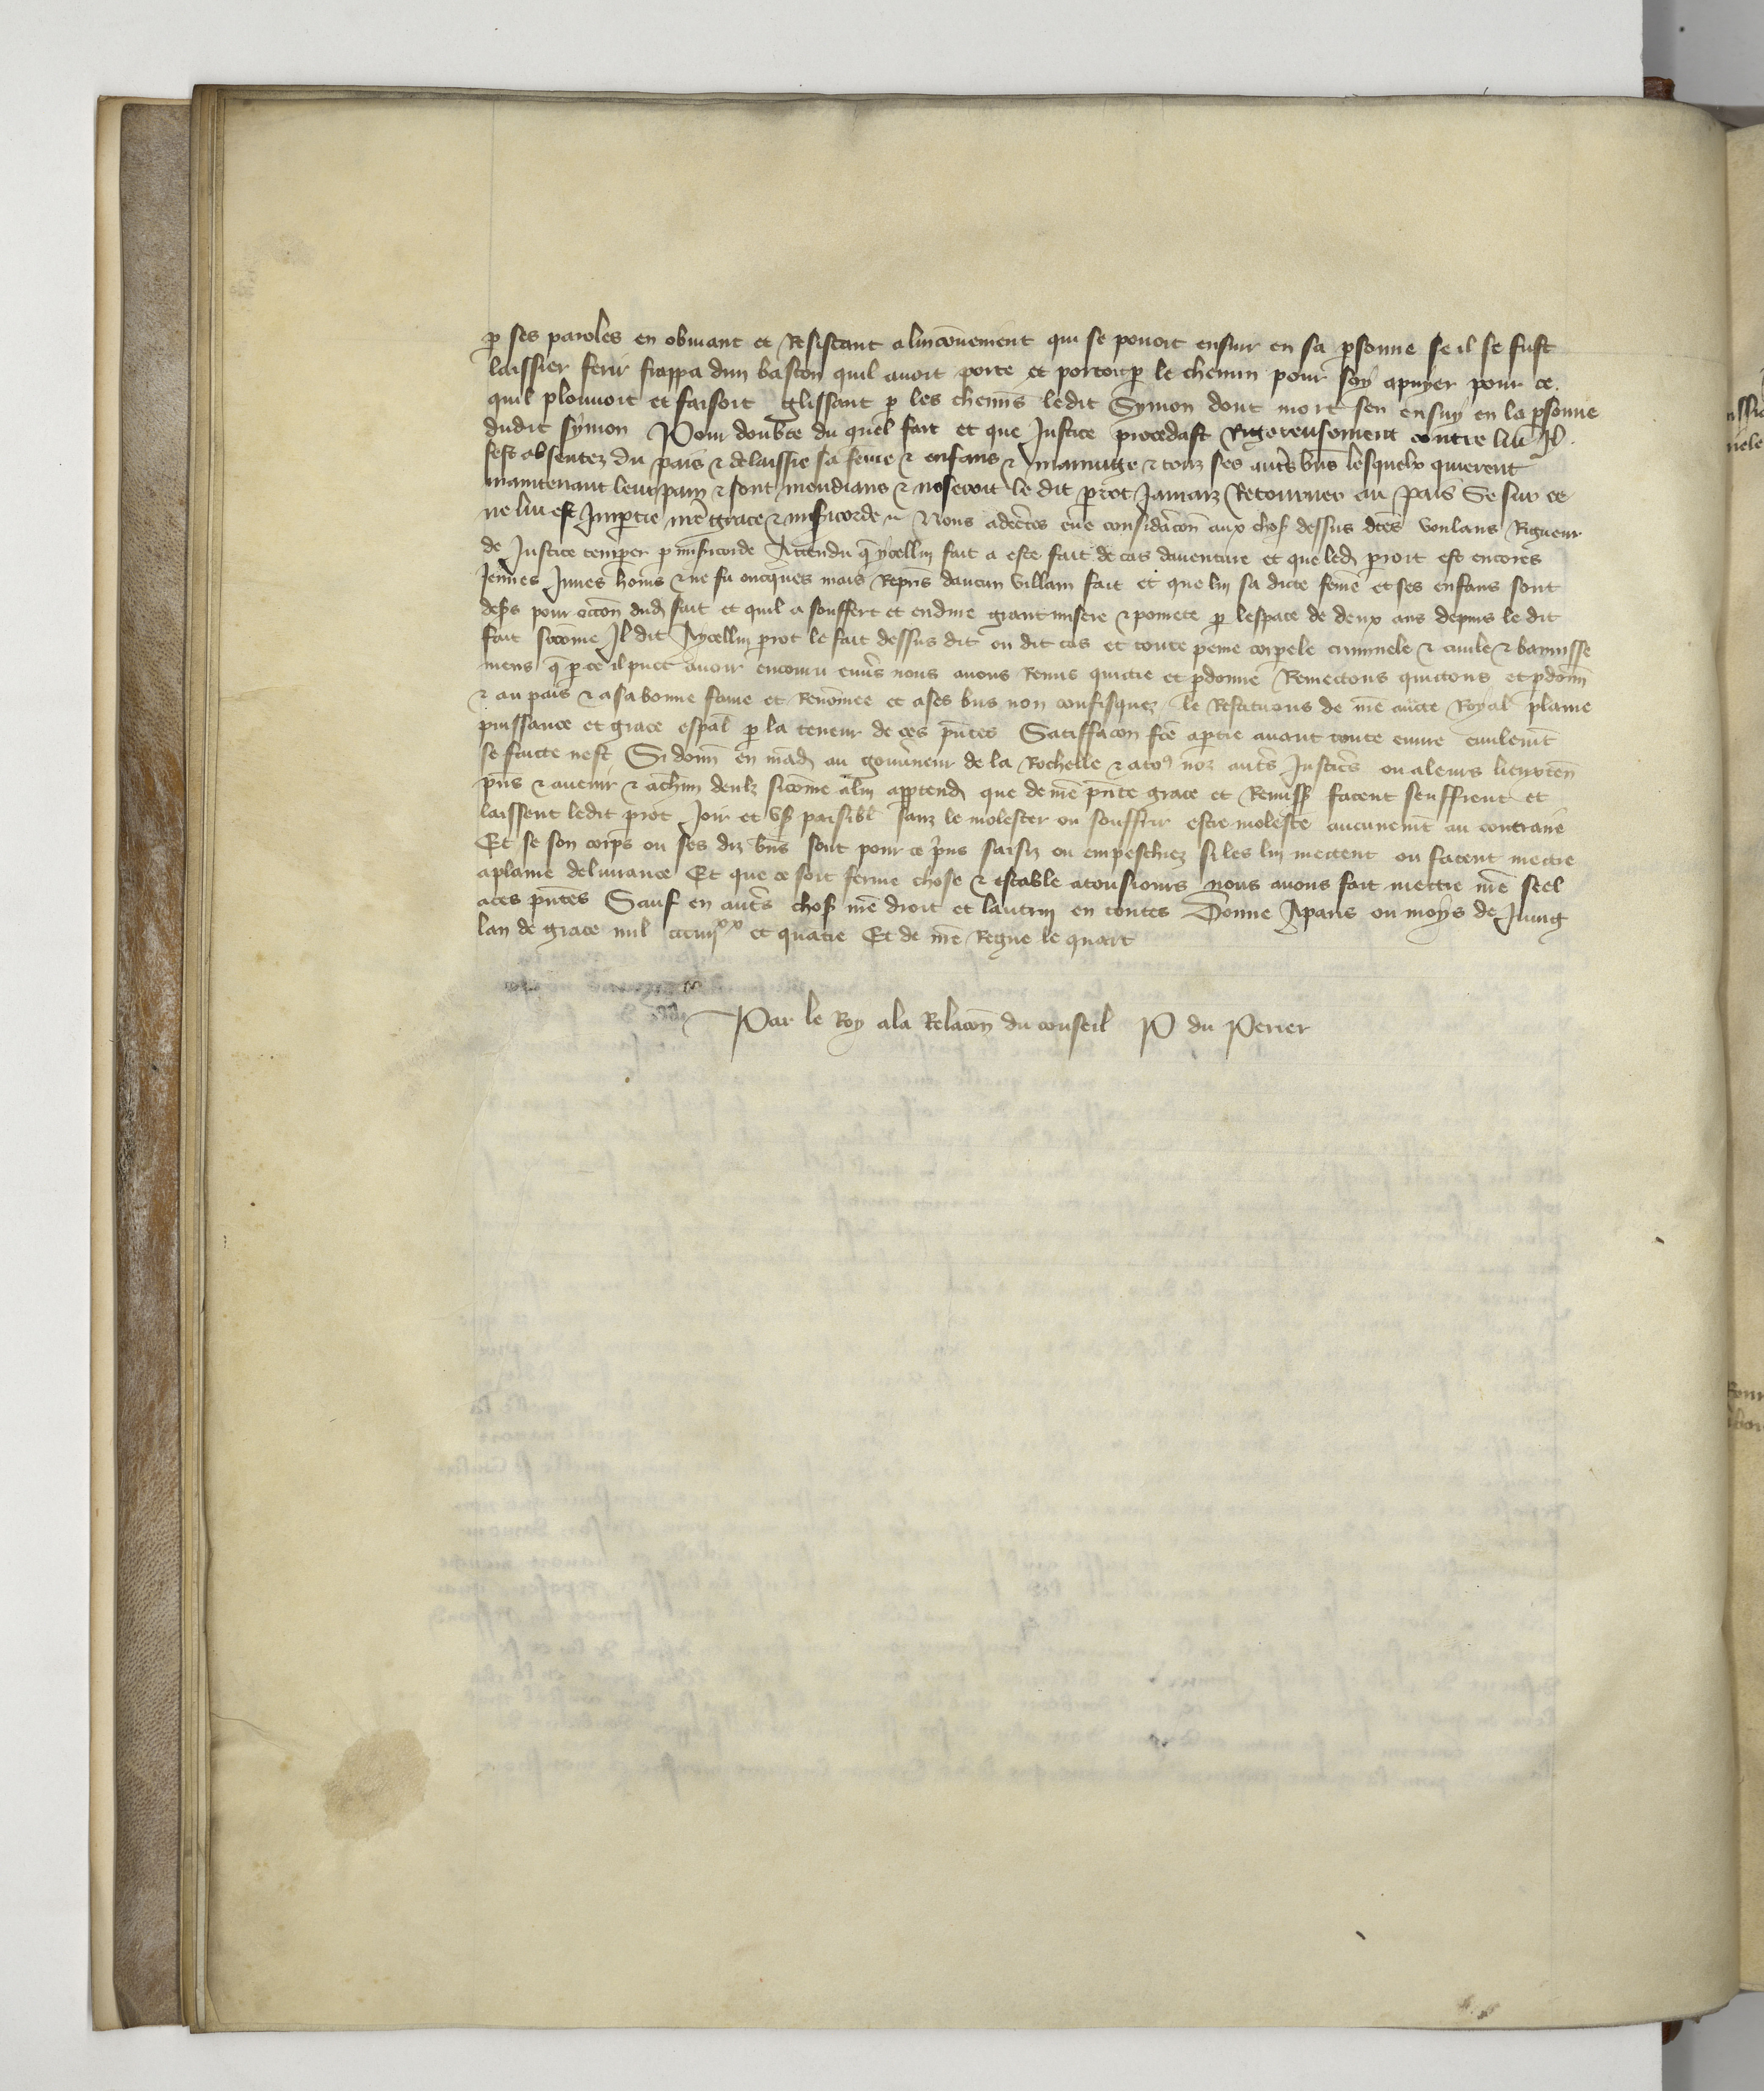 p ses paroles en obuiant et Resistant alinconuenient qui se pouoit ensuir en sa psonne se il se fust
laissier ferir frappa dun baston quil auoit porte et portoit p le chemin pour soy apuyer pour ce
quil plouuoit et faisoit glissant p les chemis ledit Symon dont mort sen ensuy en la psonne
dudit symon Pour doubte du quel fait et que Justice procedast Rigoreusement contre lui Il
sest absentez du pais & delaissie sa feme & enfans & mainnage & touz ses autres bns lesquelx quierent
maintenant leur pain & sont mendians & noseroit le dit prot Jamaiz Retourner au pais Se sur ce
ne lui est Impartie nre grace & misicorde Nous adectes eue consideracon aux chos dessus dces voulans Rigueur
de Justice temper p misericorde Attendu q ycellui fait a este fait de cas dauenture et que led prot est encores
Jeunes homs & ne fu oncques mais Repris daucun villain fait et que lui sa dicte feme et ses enfans sont
pour occon dud fait et quil a souffert et endure grant misere & pourete p lespace de deux ans depuis le dit
fait sicome Il dit Aycellui prot le fait dessus dit ou dit cas et toute peine corpele criminele & ciuile & bannisse
mens q p ce il puet auoir encouru enuers nous auons Remis quictie et pdonne Remectons quictons et pdonn
& au pais & a sa bonne fame et Renomee et ases bns non confisquez le Restituons de nre aucte Royal plaine
puissance et grace espal p la teneur de ces pntes Satiffacon fce apartie auant toute euure ciuilemt
se faicte nest Si donn en mad au gouuneur de la Rochelle & a tos noz autres Justices ou aleurs lieuxten
pns & auenir & achun deulx sicome alui apptend que de nre pnte grace et Remiss facent seuffrent et
laissent ledit prot Joir et vs paisibl sanz le molester ou souffrir estre moleste aucunemt au contraire
Et se son corps ou ses diz bns sont pour ce pris saisiz ou empeschiez si les lui mectent ou facent mectre
aplaine deliurance Et que ce soit ferme chose & estable atousiours nous auons fait mectre nre seel
aces pntes Sauf en autres chos nre droit et lautrui en toutes Donne Aparis ou moys de Juing
lan de grace mil ccciiijxx et quatre Et de nre Regne le quart
Par le Roy ala Relacon du conseil P du Perier